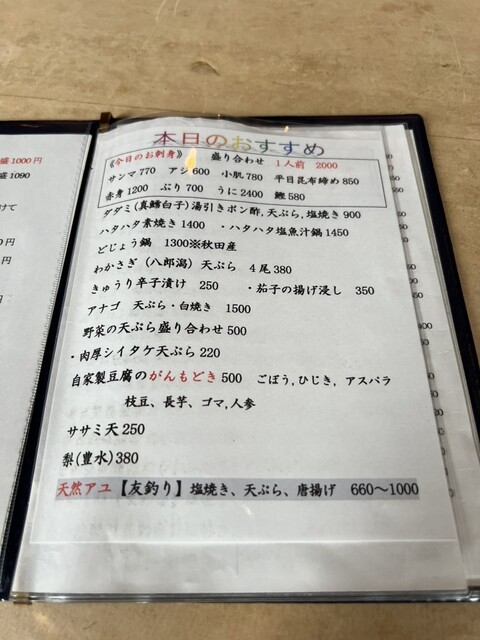 本日のおすすめ
《今日のお刺身》 盛り合わせ 1人前 2000
サンマ770 アジ600 小肌780 平目昆布締め850
赤身1200 ぶり700 うに2400 鰹580
ダダミ(真鱈白子)湯引きポン酢,天ぷら,塩焼き900
ハタハタ素焼き1400 ・ハタハタ塩魚汁鍋1450
どじょう鍋 1300※秋田産
わかさぎ(八郎潟)天ぷら 4尾380
きゅうり辛子漬け 250 ・茄子の揚げ浸し 350
アナゴ 天ぷら・白焼き 1500
野菜の天ぷら盛り合わせ500
・肉厚シイタケ天ぷら220
自家製豆腐のがんもどき500 ごぼう,ひじき, アスパラ
枝豆、長芋、ゴマ,人参
ササミ天250
梨(豊水)380
天然アユ【友釣り】塩焼き、天ぷら、唐揚げ 660～1000
盛1000円
盛1090
けて
円